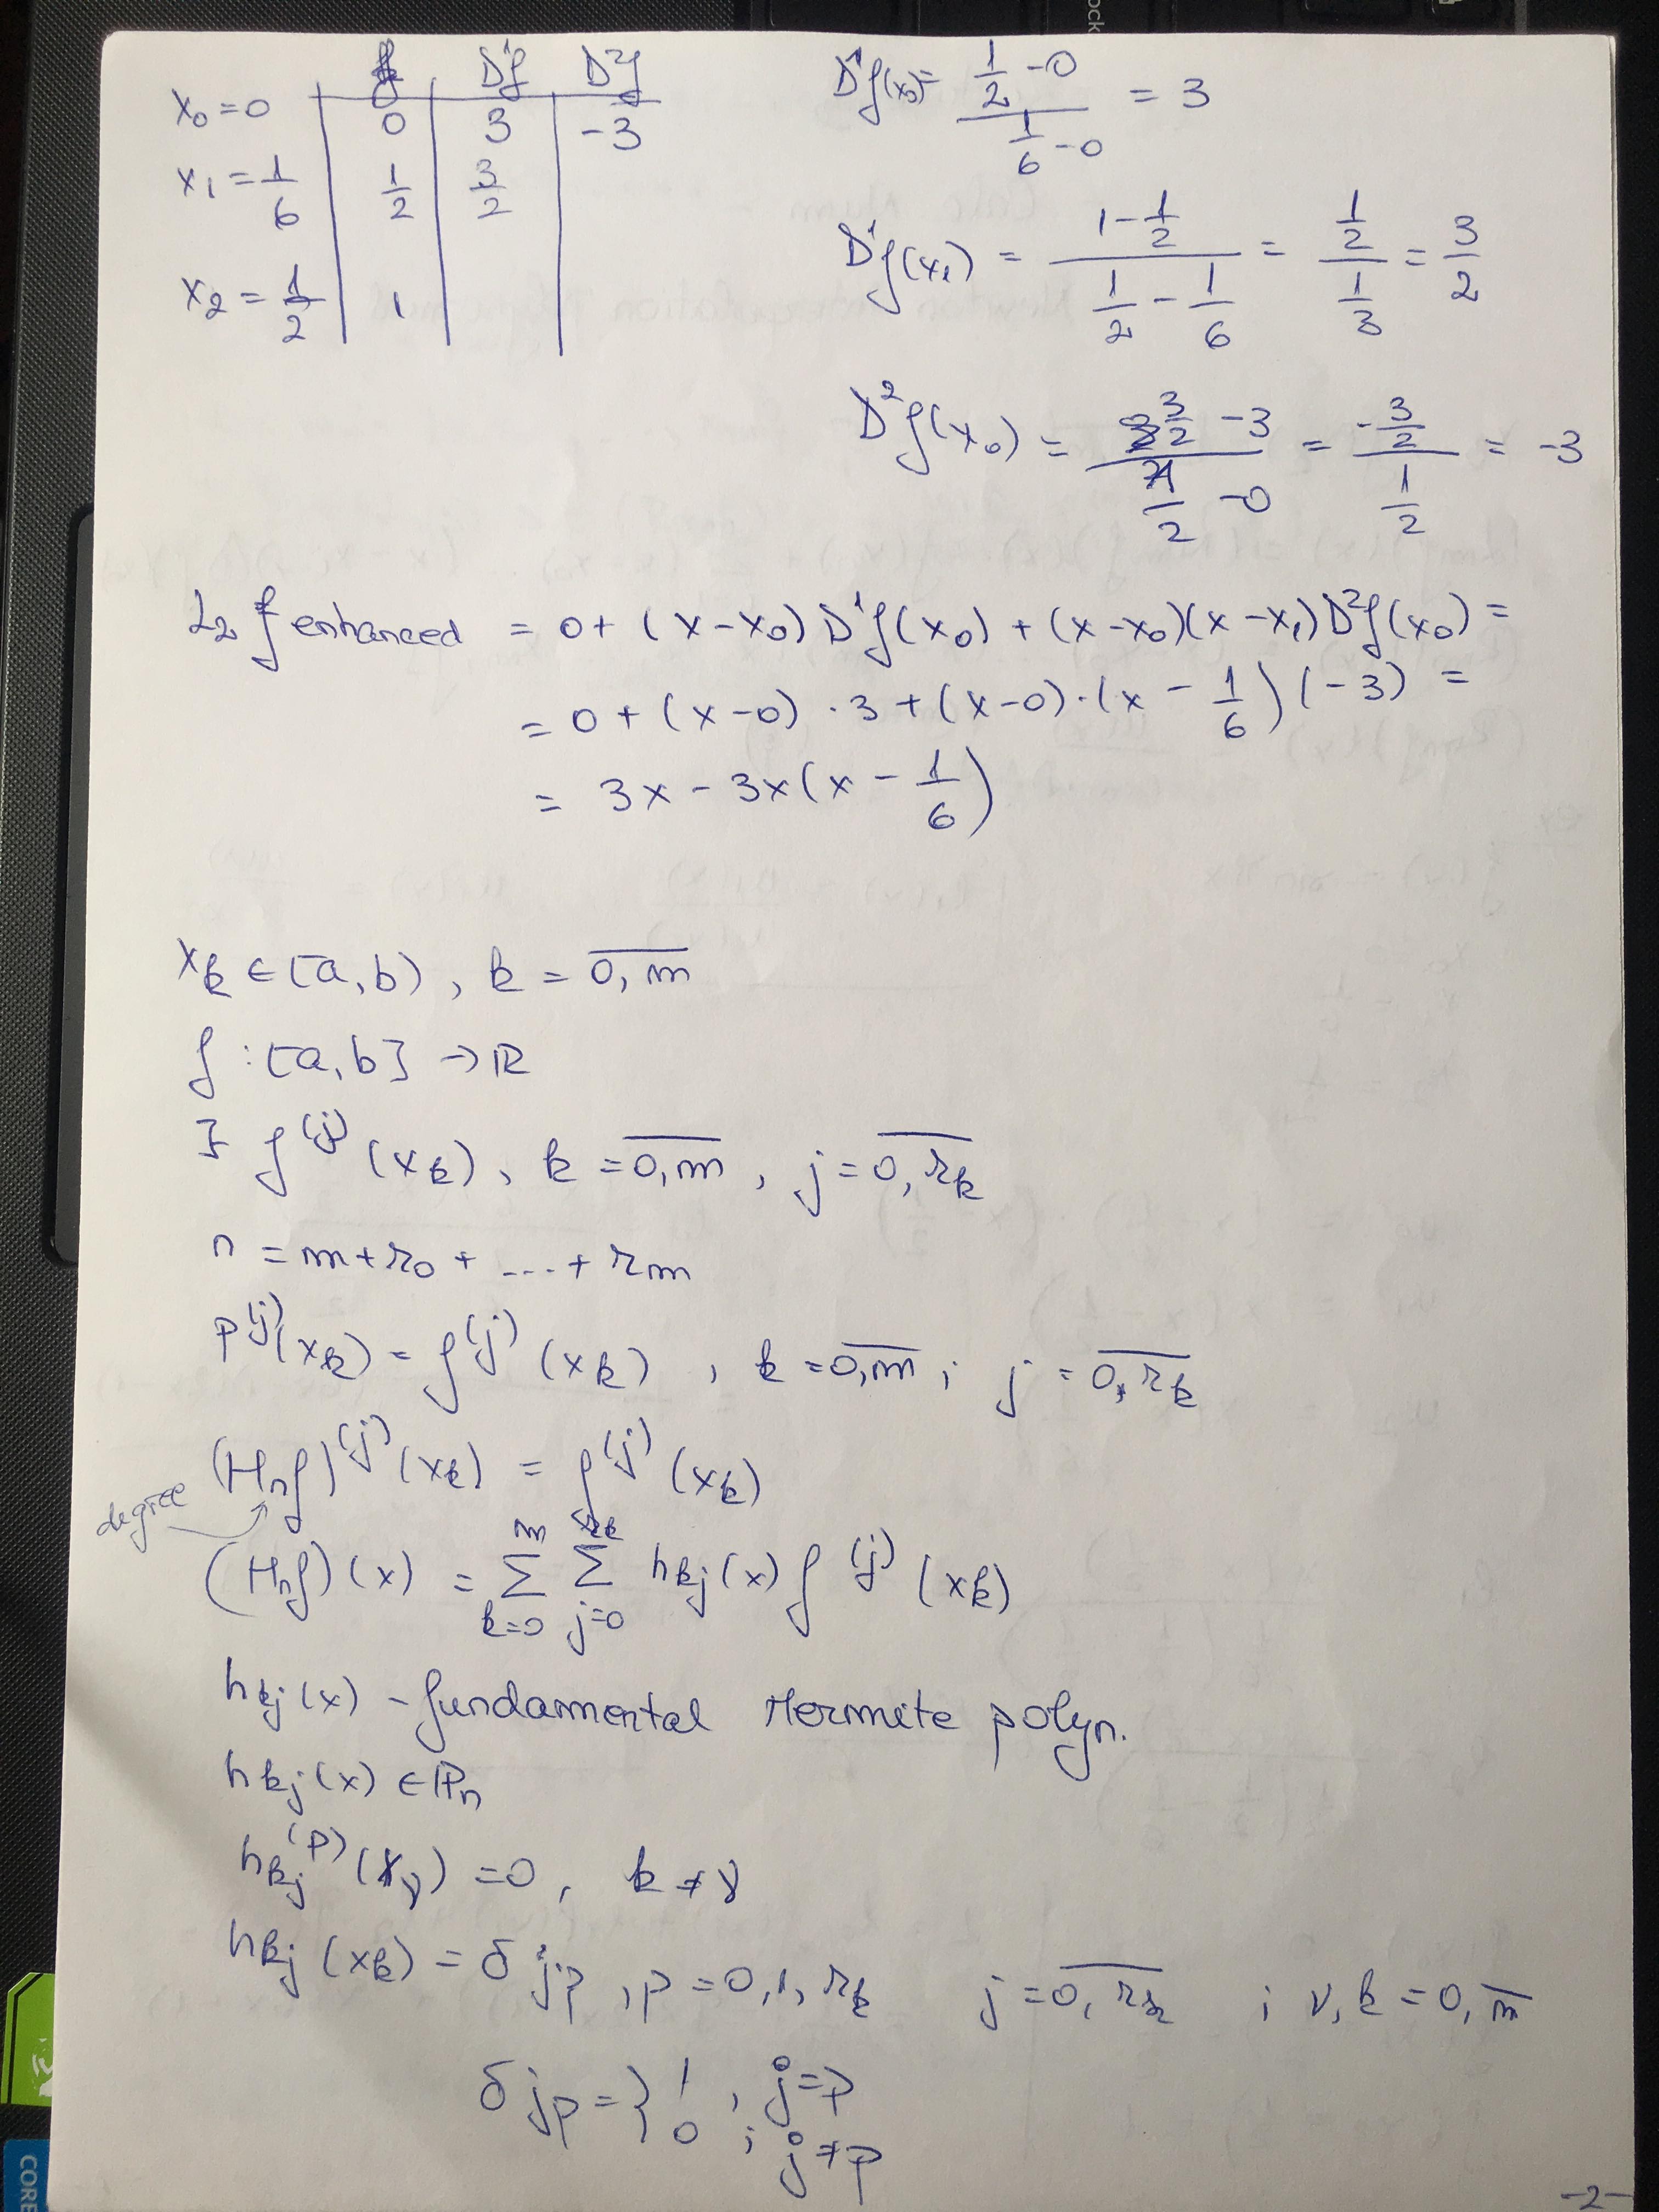 f D¹f D²f
x₀ = 0 | 0 | 3 | -3
x₁ = 1/6 | 1/2 | 3/2
x₂ = 1/2 | 1
D¹f(x₀) = (1/2 - 0)/(1/6 - 0) = 3
D¹f(x₁) = (1 - 1/2)/(1/2 - 1/6) = (1/2)/(1/3) = 3/2
D²f(x₀) = (3/2 - 3)/(1/2 - 0) = (-3/2)/(1/2) = -3
L₂f enhanced = 0 + (x-x₀)D¹f(x₀) + (x-x₀)(x-x₁)D²f(x₀) =
= 0 + (x-0) · 3 + (x-0) · (x - 1/6)(-3) =
= 3x - 3x(x - 1/6)
x_k ∈ [a, b), k = \overline{0, m}
f : [a, b] → ℝ
∃ f^(j)(x_k), k = \overline{0, m}, j = \overline{0, r_k}
n = m + r₀ + ... + r_m
p^(j)(x_k) = f^(j)(x_k), k = \overline{0, m}; j = \overline{0, r_k}
(H_n f)^(j)(x_k) = f^(j)(x_k)
degree
(H_n f)(x) = ∑_{k=0}^{m} ∑_{j=0}^{r_k} h_kj(x) f^(j)(x_k)
h_kj(x) - fundamental Hermite polyn.
h_kj(x) ∈ ℙ_n
h_kj^(p)(x_ν) = 0, k ≠ ν
h_kj(x_k) = δ_jp, p = 0, 1, r_k j = \overline{0, r_k} ; ν, k = \overline{0, m}
δ_jp = { 1 , j = p
0 ; j ≠ p
-2-
CORE
ock